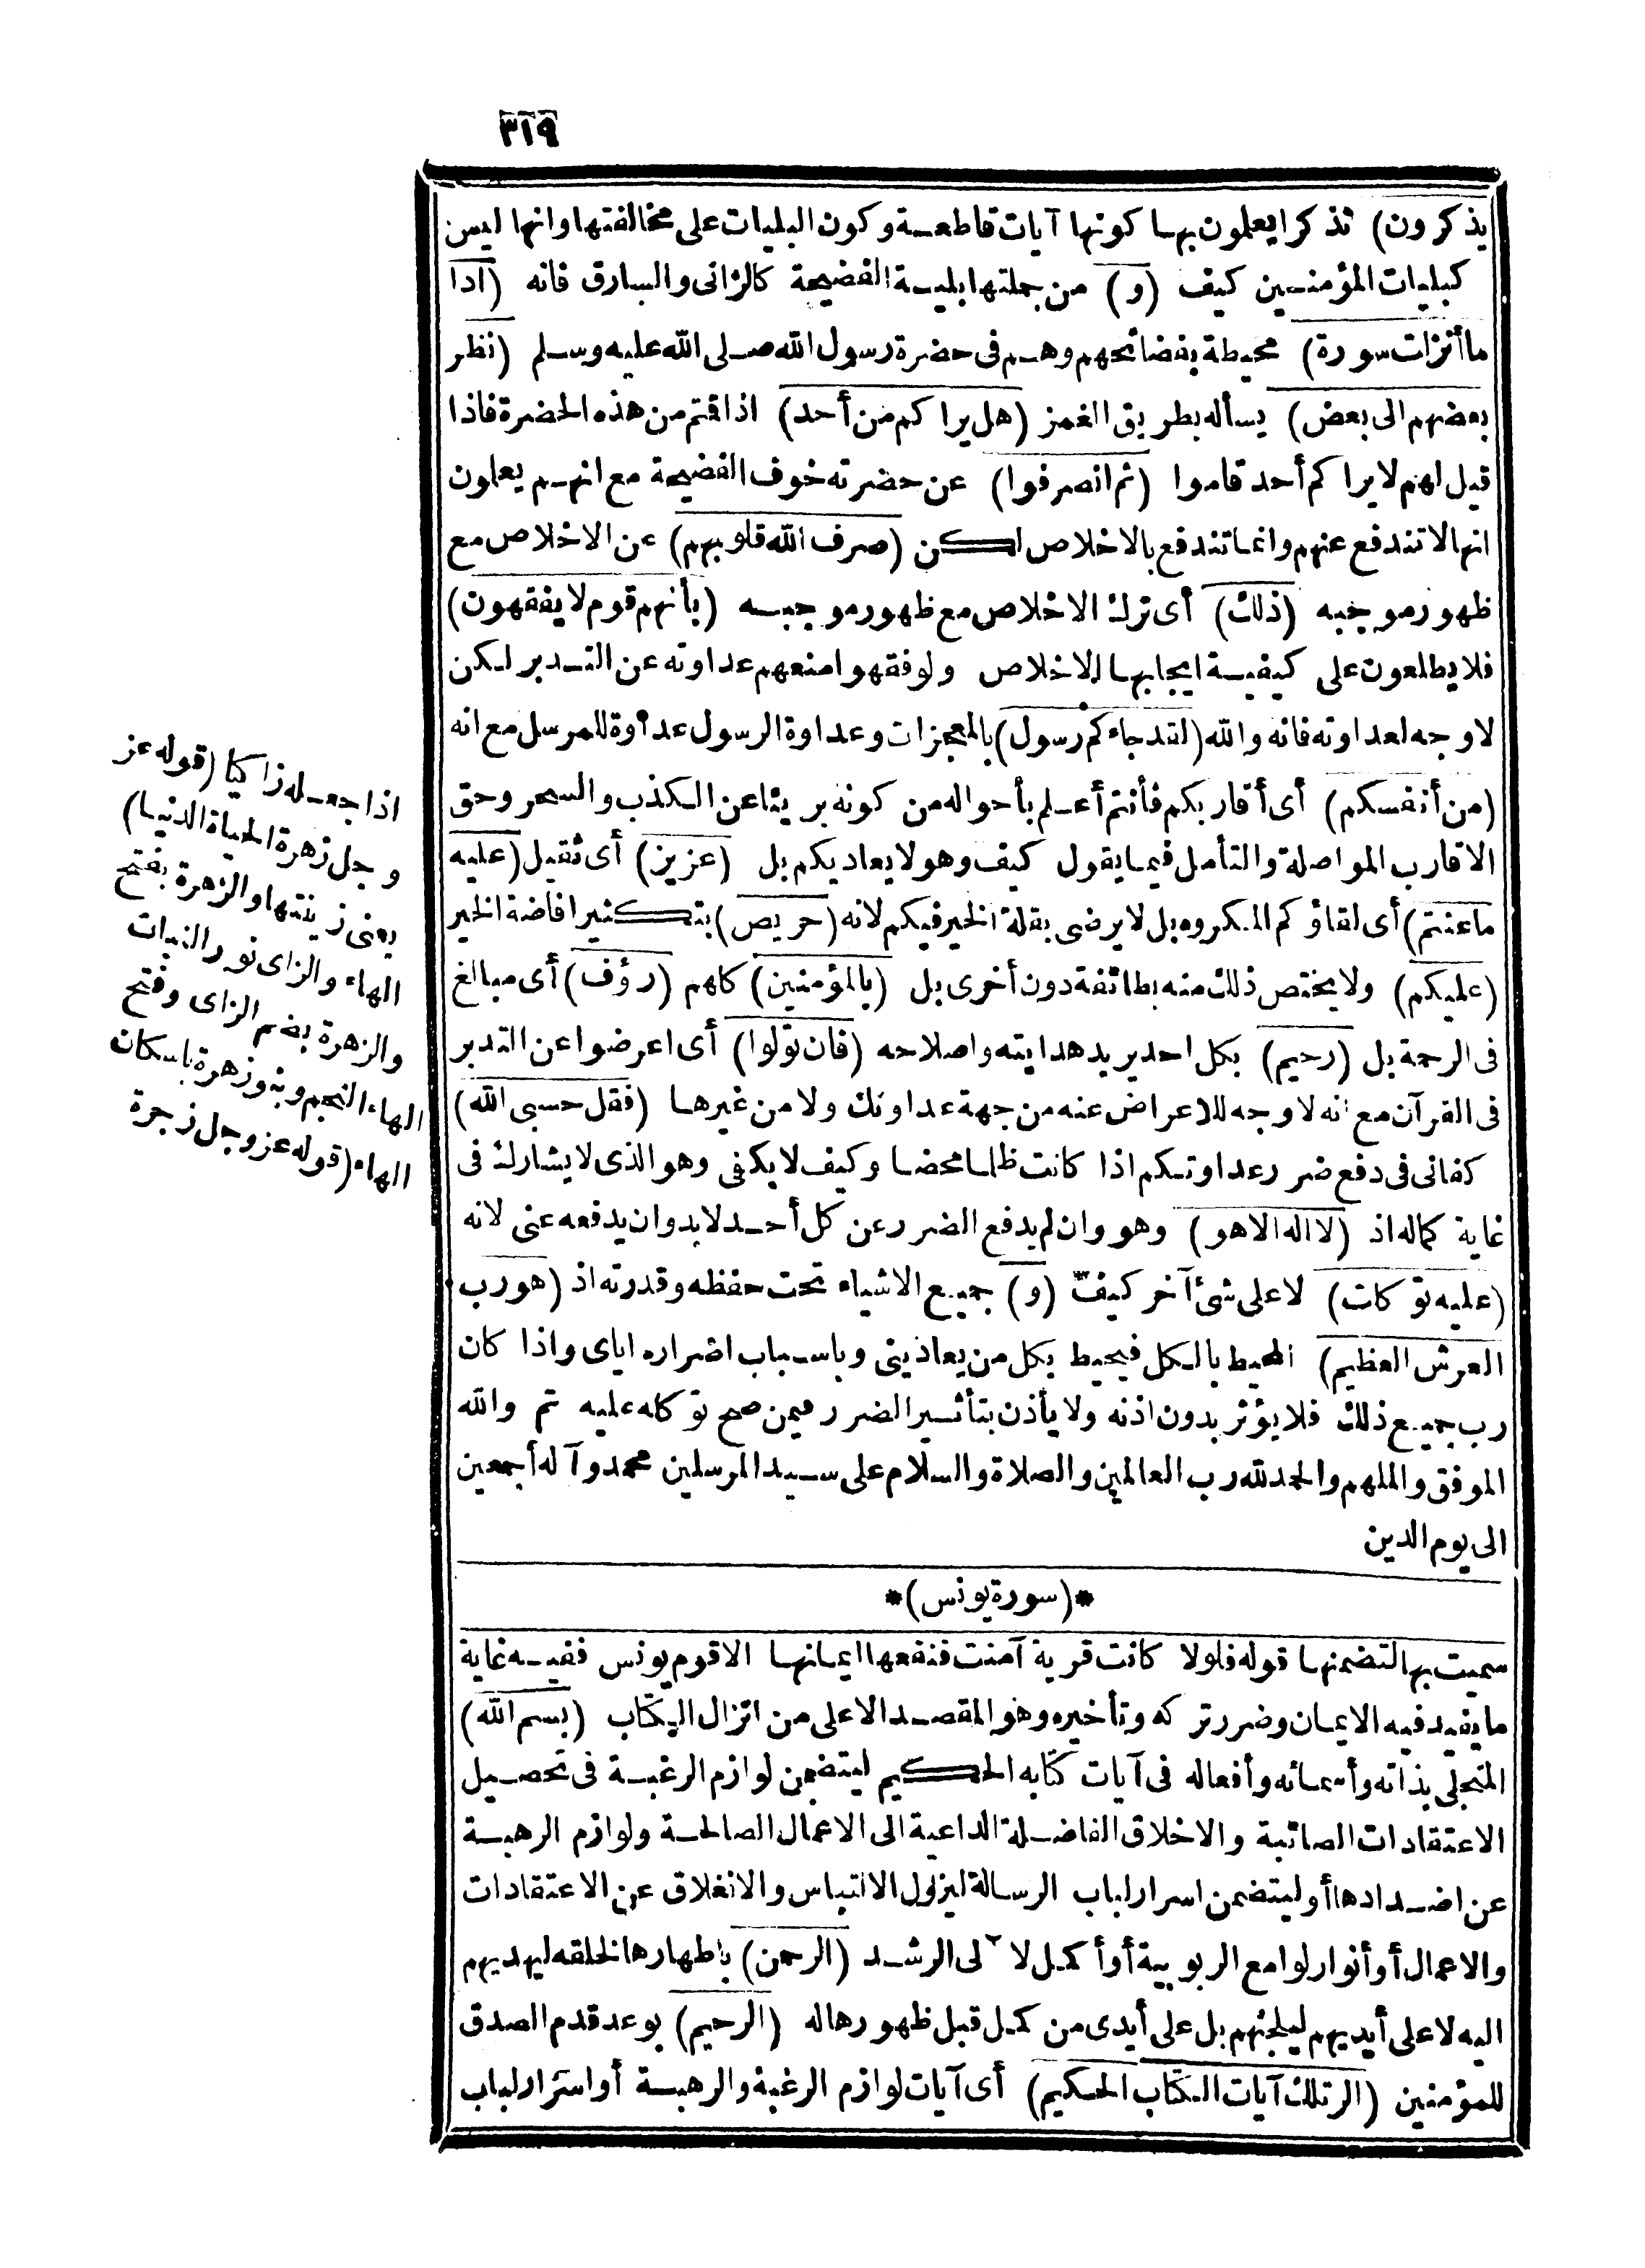 ٣١٩
يذكرون) تذكرا يعلمون بها كونها آيات قاطعة وكون البليات على مخالفتها وانها ليس
كبليات المؤمنين كيف (و) من جملتها بلية الفضيحة كالزانى والسارق فانه (اذا
ما أنزلت سورة) محيطة بفضائحهم وهم فى حضرة رسول الله صلى الله عليه وسلم (نظر
بعضهم الى بعض) يسأله بطريق الغمز (هل يراكم من أحد) اذا قتم من هذه الحضرة فاذا
قيل لهم لا يراكم أحد قاموا (ثم انصرفوا) عن حضرته خوف الفضيحة مع انهم يعلون
انها لا تندفع عنهم وانما تندفع بالاخلاص لكن (صرف الله قلوبهم) عن الاخلاص مع
ظهور موجبه (ذلك) أى ترك الاخلاص مع ظهور موجبه (بأنهم قوم لا يفقهون)
فلا يطلعون على كيفية ايجابها للاخلاص ولو فقهوا منعهم عداوته عن التدبر لكن
لا وجه لعداوته فانه والله (لقد جاءكم رسول) بالمعجزات وعداوة الرسول عداوة للمرسل مع انه
(من أنفسكم) أى أقاربكم فأنتم أعلم بأحواله من كونه بريئا عن الكذب والسحر وحق
الاقارب المواصلة والتأمل فيما يقول كيف وهو لا يعاديكم بل (عزيز) أى ثقيل (عليه
ما عنتم) أى لقاؤكم المكروه بل لا يرضى بقلة الخير فيكم لانه (حريص) بتكثير افاضة الخير
(عليكم) ولا يختص ذلك منه بطائفة دون أخرى بل (بالمؤمنين) كلهم (رؤف) أى مبالغ
فى الرحمة بل (رحيم) بكل احد يريد هدايته واصلاحه (فان تولوا) أى اعرضوا عن التدبر
فى القرآن مع انه لا وجه للاعراض عنه من جهة عداوتك ولا من غيرها (فقل حسبى الله)
كفانى فى دفع ضرر عداوتكم اذا كانت ظلما محضا وكيف لا يكفى وهو الذى لا يشارك فى
غاية كماله اذ (لا اله الا هو) وهو وان لم يدفع الضرر عن كل أحد لا بد وان يدفعه عنى لانه
(عليه توكلت) لا على شئ آخر كيف (و) جميع الاشياء تحت حفظه وقدرته اذ (هو رب
العرش العظيم) المحيط بالكل فيحيط بكل من يعادينى وباسباب اضراره اياى واذا كان
رب جميع ذلك فلا يؤثر بدون اذنه ولا يأذن بتأثير الضرر فيمن صح توكله عليه تم والله
الموفق والملهم والحمد لله رب العالمين والصلاة والسلام على سيد المرسلين محمد وآله أجمعين
الى يوم الدين
*(سورة يونس)*
سميت بها لتضمنها قوله فلولا كانت قرية آمنت فنفعها ايمانها الا قوم يونس ففيه غاية
ما يفيد فيه الايمان وضرر تركه وتأخيره وهو المقصد الاعلى من انزال الكتاب (بسم الله)
المتجلى بذاته وأسمائه وأفعاله فى آيات كتابه الحكيم ليتضمن لوازم الرغبة فى تحصيل
الاعتقادات الصائبة والاخلاق الفاضلة الداعية الى الاعمال الصالحة ولوازم الرهبة
عن اضدادها أو ليتضمن اسرار لباب الرسالة ليزول الالتباس والانغلاق عن الاعتقادات
والاعمال أو أنوار لوامع الربوبية أو أكمل لآلى الرشد (الرحمن) باظهارها لخلقه ليهديهم
اليه لا على أيديهم ليلجئهم بل على أيدى من كمل قبل ظهورها له (الرحيم) بوعد قدم الصدق
للمؤمنين (الر تلك آيات الكتاب الحكيم) أى آيات لوازم الرغبة والرهبة أو اسرار لباب
اذا جعله زاكيا (قوله عز
وجل زهرة الحياة الدنيا)
يعنى زينتها والزهرة بفتح
الهاء والزاى نور النبات
والزهرة بضم الزاى وفتح
الهاء النجم وبنو زهرة باسكان
الهاء (قوله عز وجل زجرة